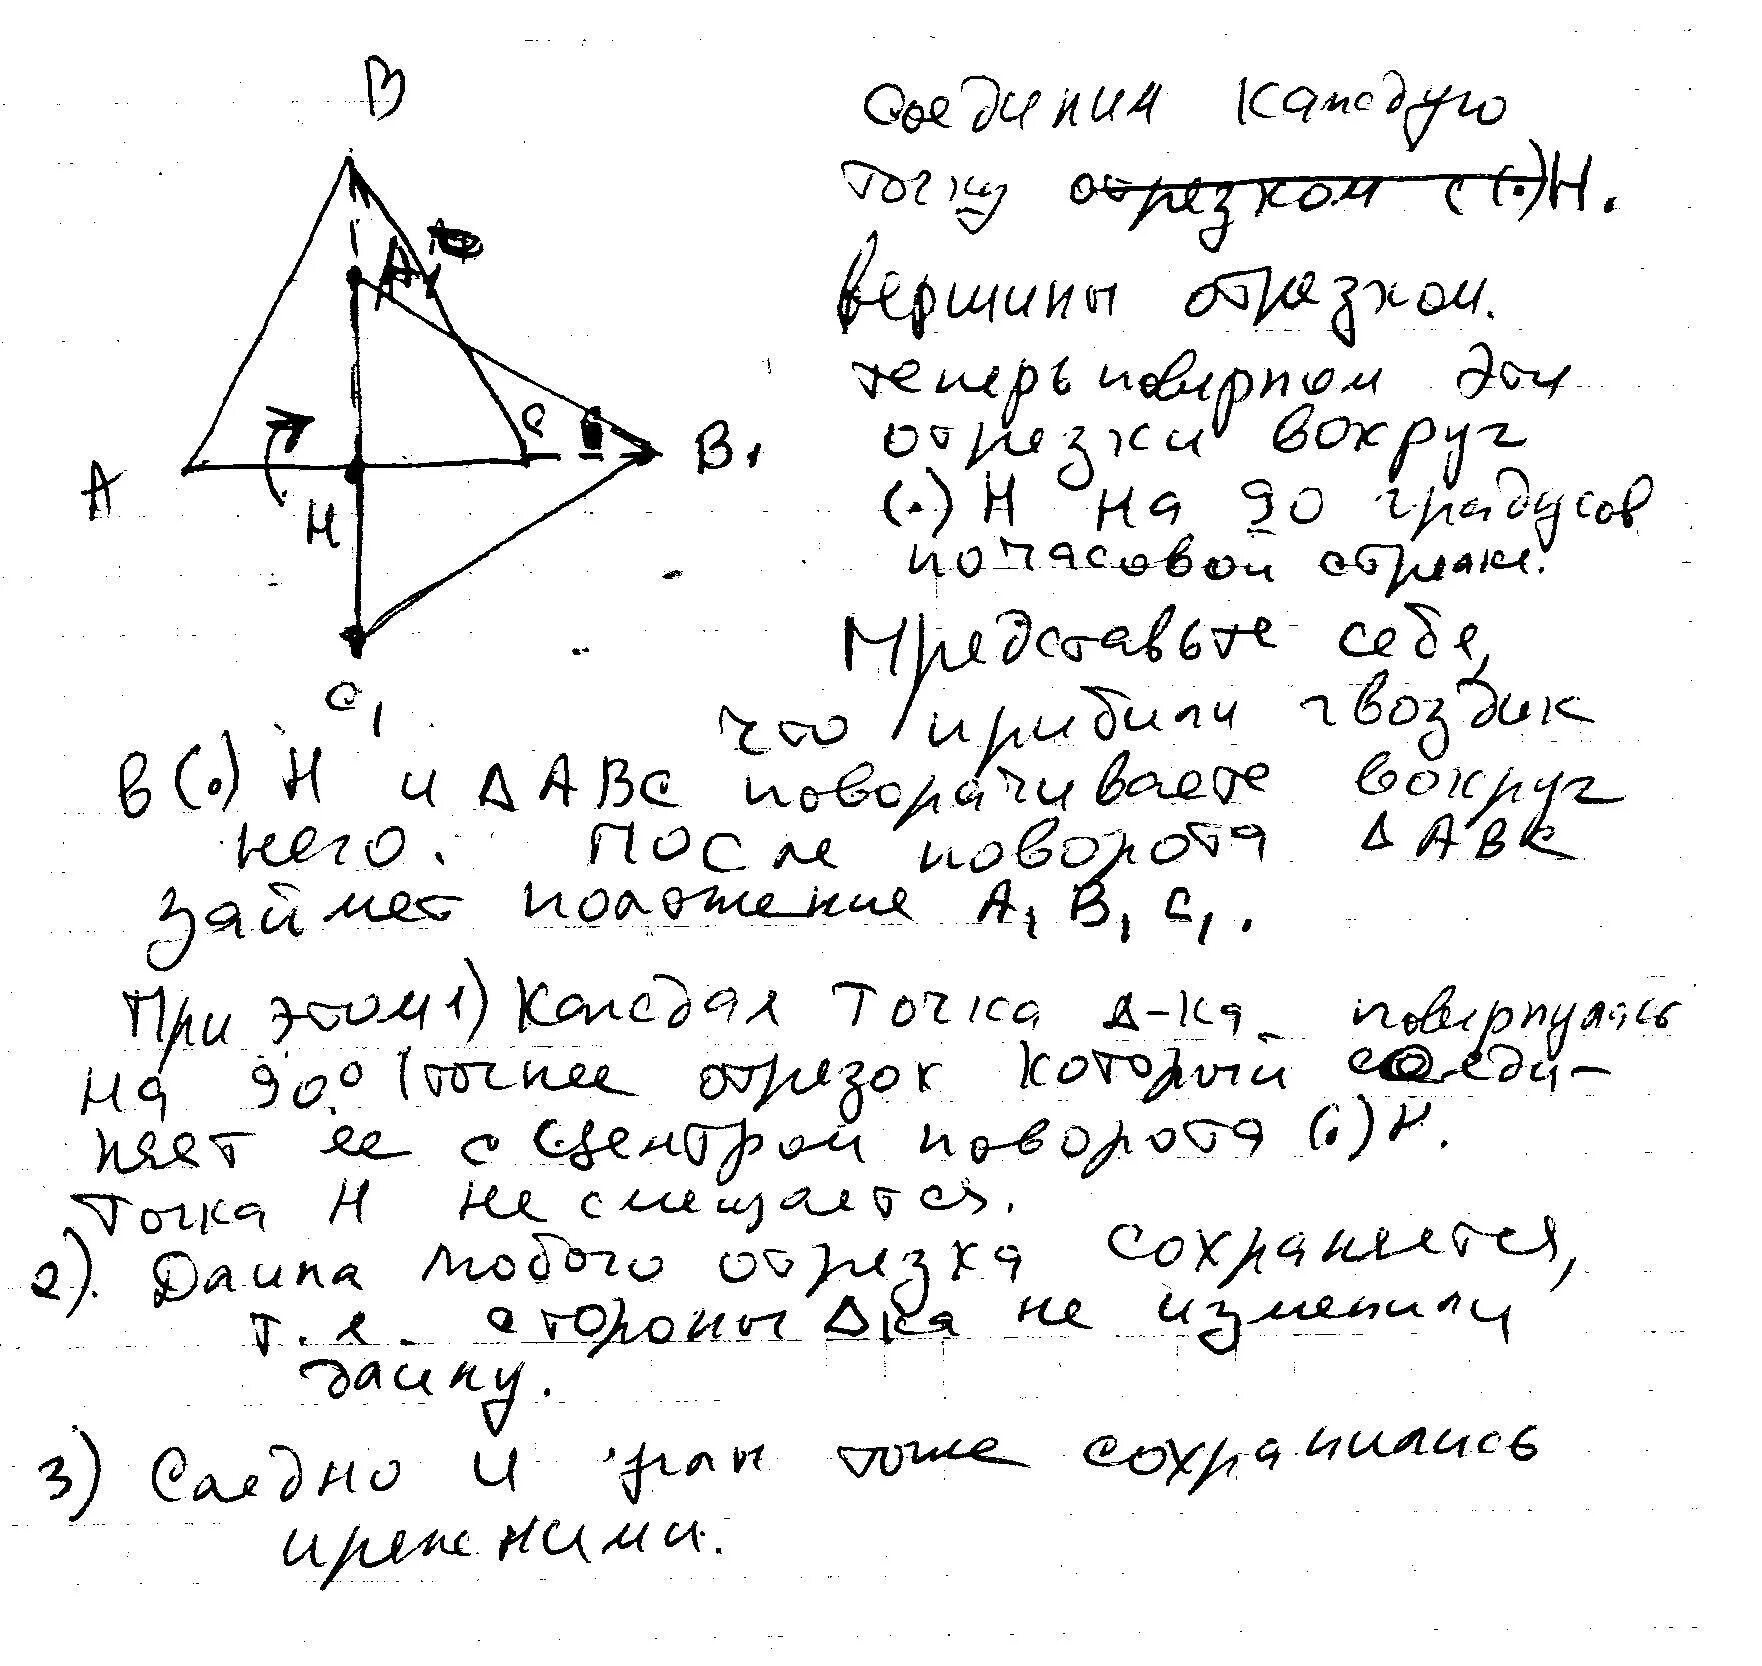 B
A₁
C
B₁
A
H
C₁
Соединим каждую
точку отрезком с (·)H.
вершины отрезком.
теперь повернем эти
отрезки вокруг
(·) H на 90 градусов
по часовой стрелке.
Представьте себе,
что прибили гвоздик
в (·) H и Δ ABC поворачиваете вокруг
него. После поворота Δ ABC
займет положение A₁ B₁ C₁.
При этом 1) Каждая точка Δ-ка повернулась
на 90° (точнее отрезок который соеди-
няет ее с центром поворота (·) H.
Точка H не смещается.
2). Длина любого отрезка сохраняется,
т.е. стороны Δка не изменили
длину.
3) Следно и углы тоже сохранились
прежними.